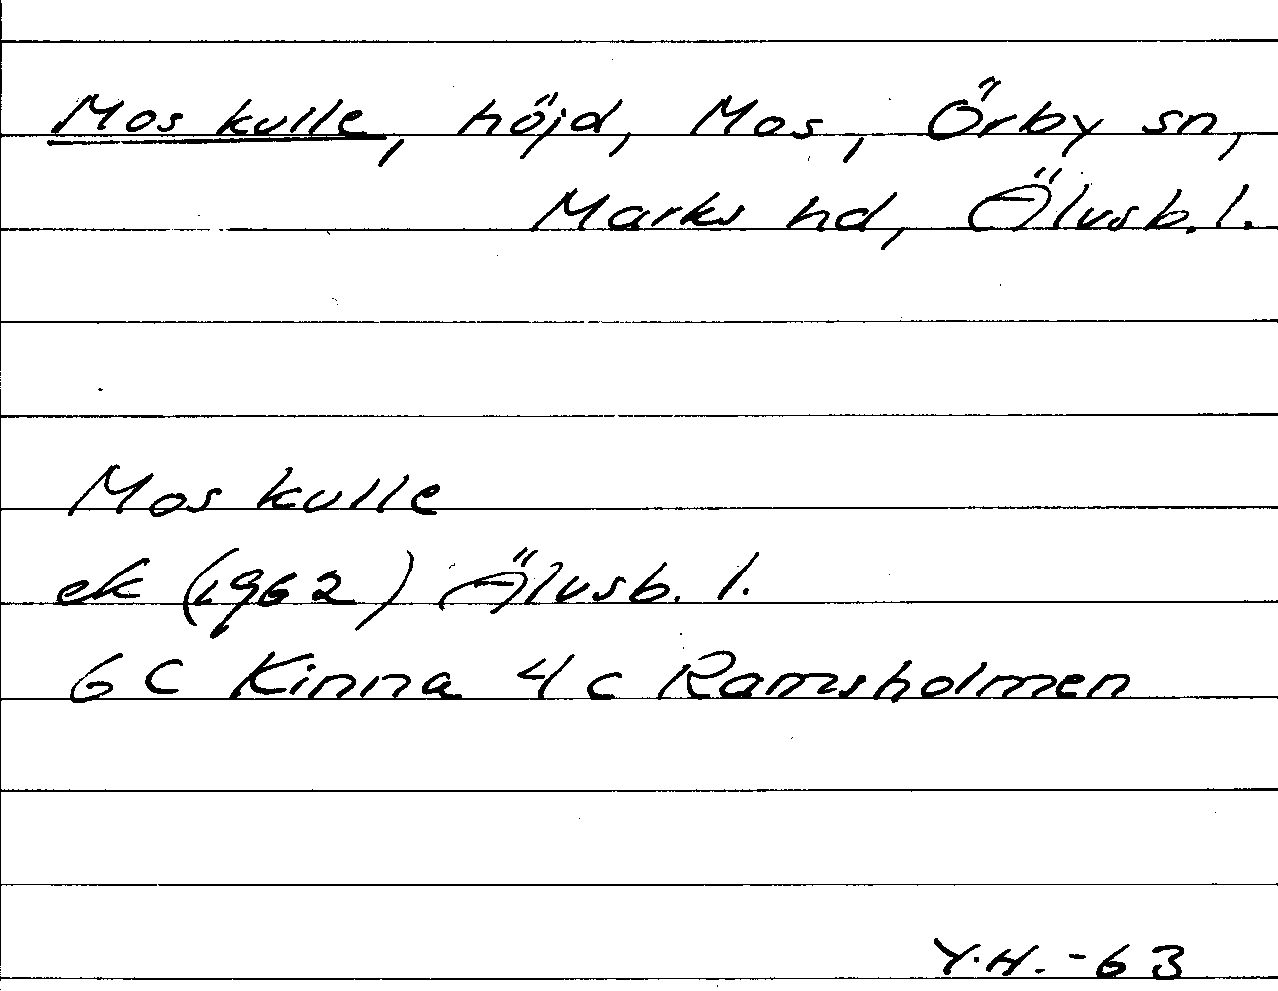 Mos kulle, höjd, Mos, Örby sn,
Marks hd, Älvsb. l.
Mos kulle
ek (1962) Älvsb. l.
6 C Kinna 4 c Ramsholmen
Y.H. -63